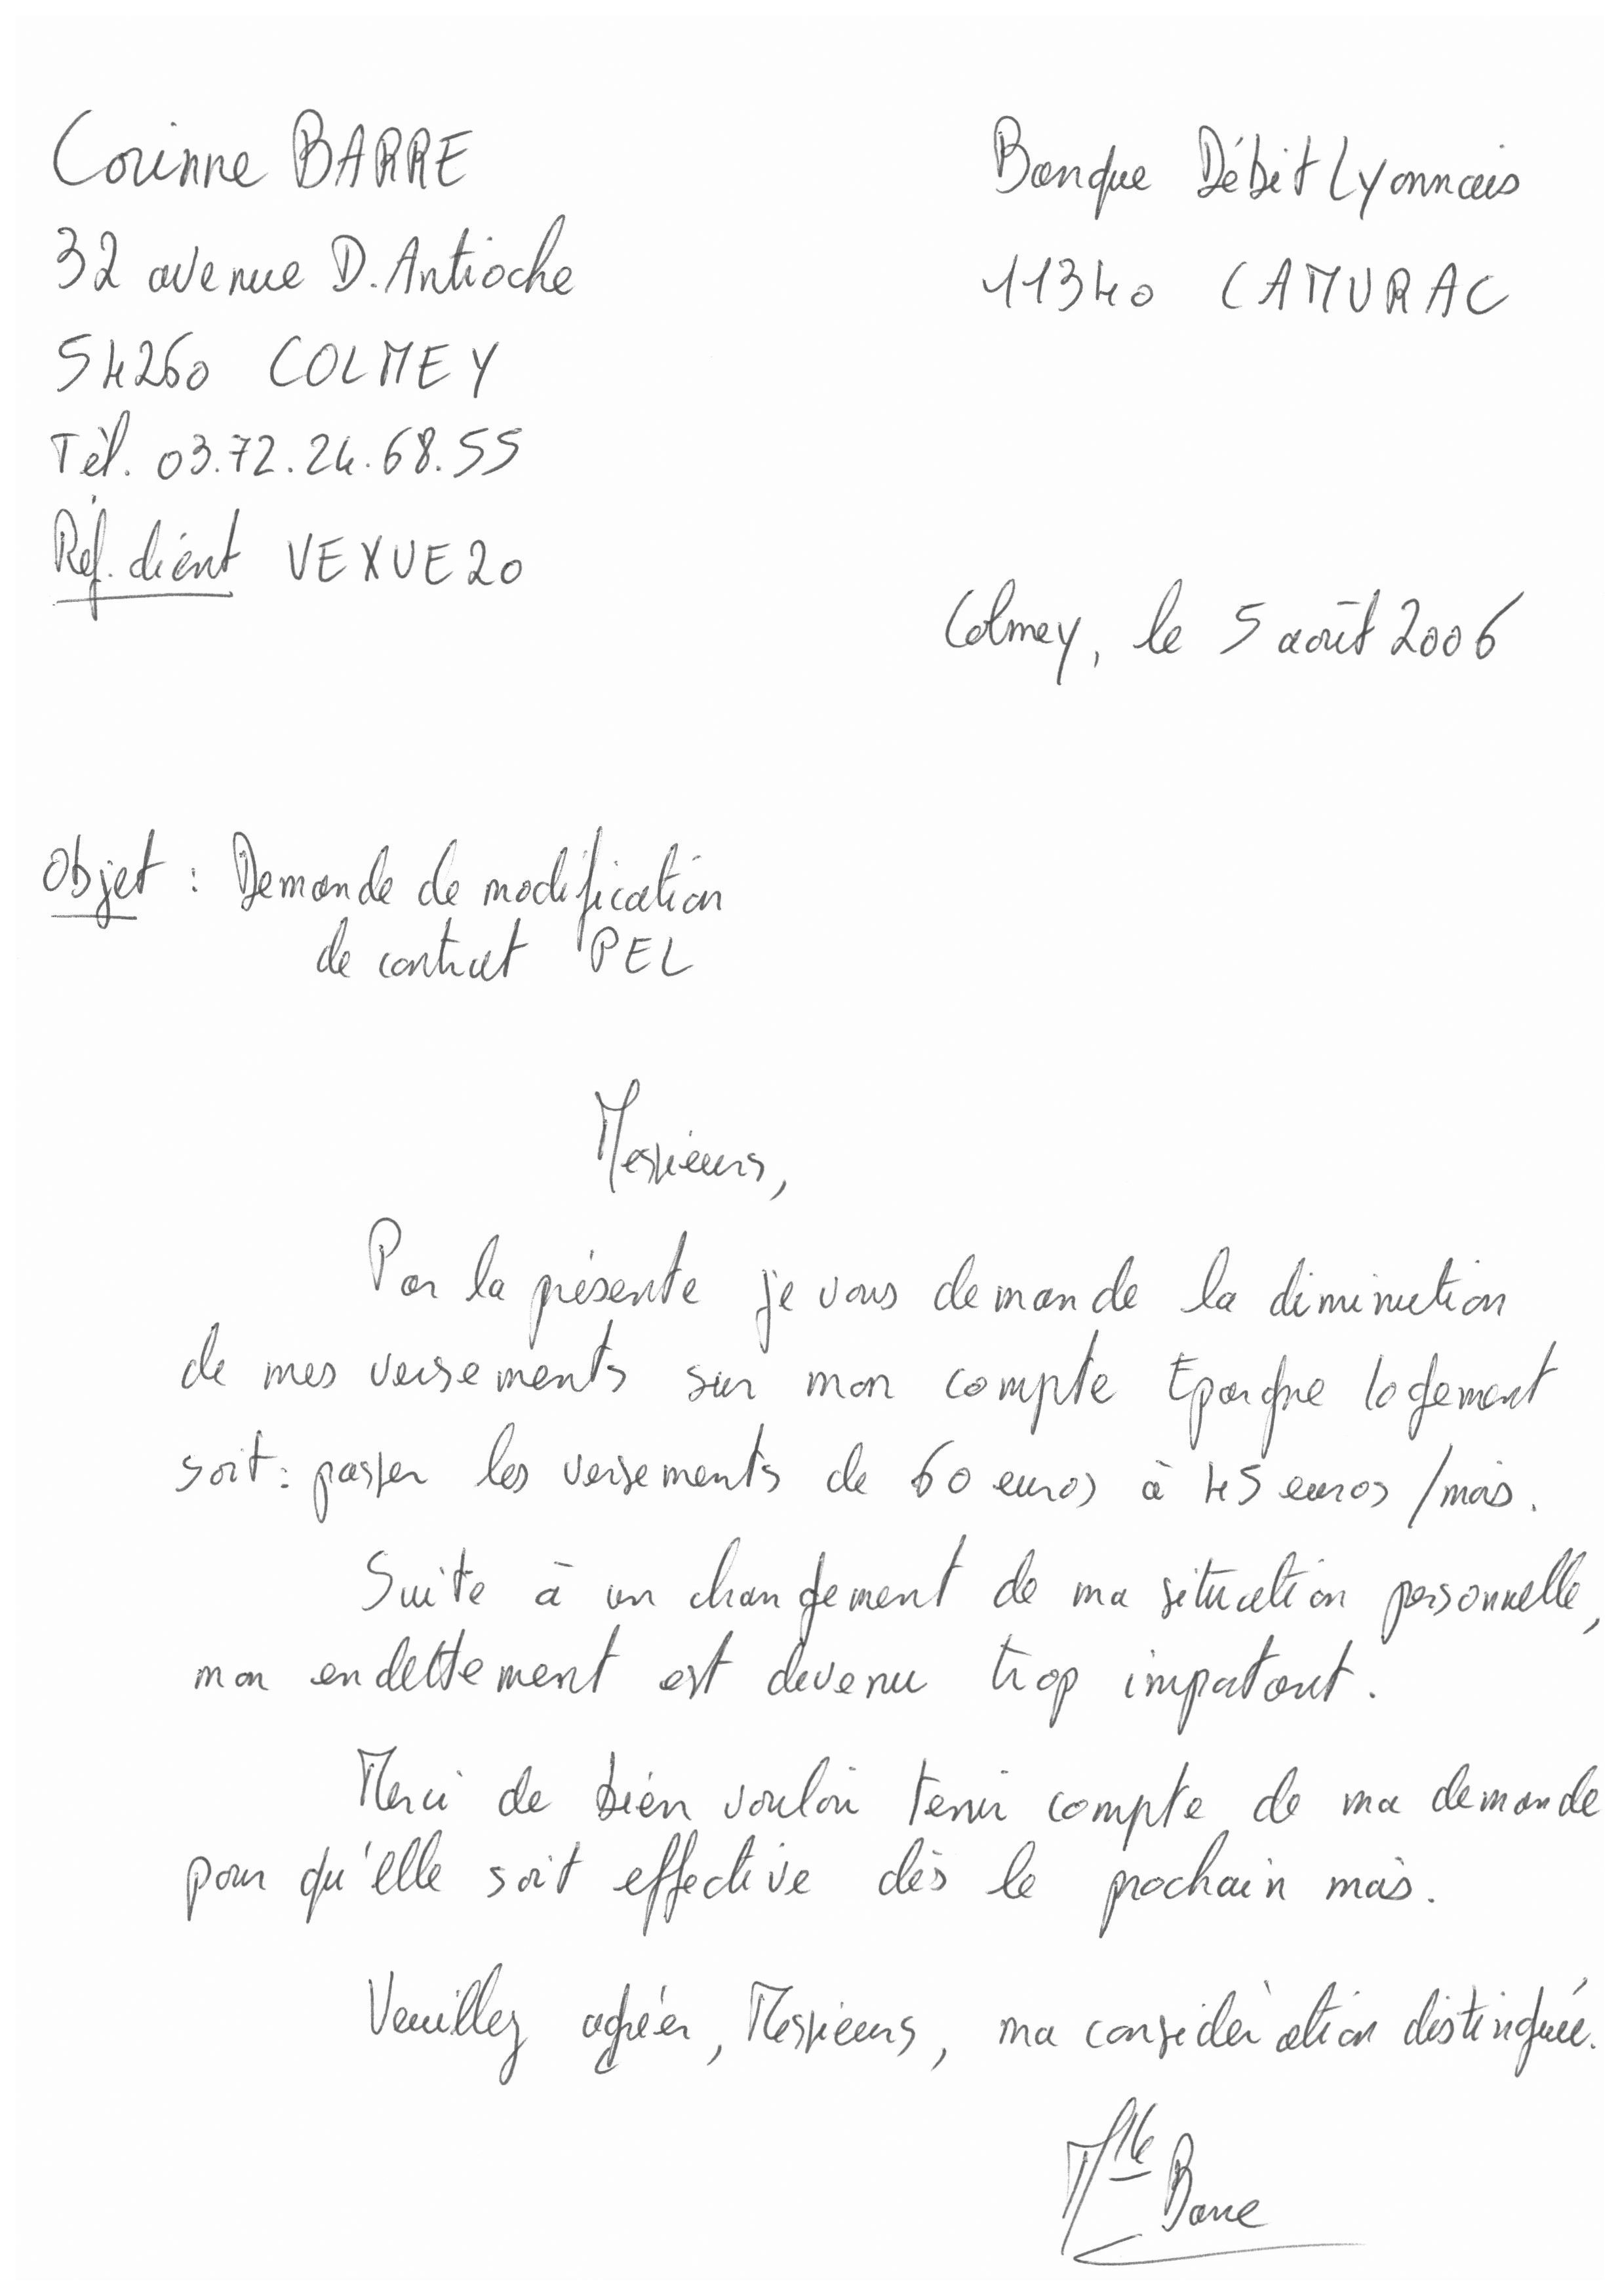 Corinne BARRE
32 avenue D. Antioche
54260 COLMEY
Tél. 03.72.24.68.55
Réf. client VEXUE20
Banque Débit Lyonnais
11340 CAMURAC
Colmey, le 5 août 2006
Objet : Demande de modification
de contrat PEL
Messieurs,
Par la présente je vous demande la diminution
de mes versements sur mon compte Epargne logement
soit : passer les versements de 60 euros à 45 euros /mois.
Suite à un changement de ma situation personnelle,
mon endettement est devenu trop important.
Merci de bien vouloir tenir compte de ma demande
pour qu'elle soit effective dès le prochain mois.
Veuillez agréer, Messieurs, ma considération distinguée.
Mlle Barre